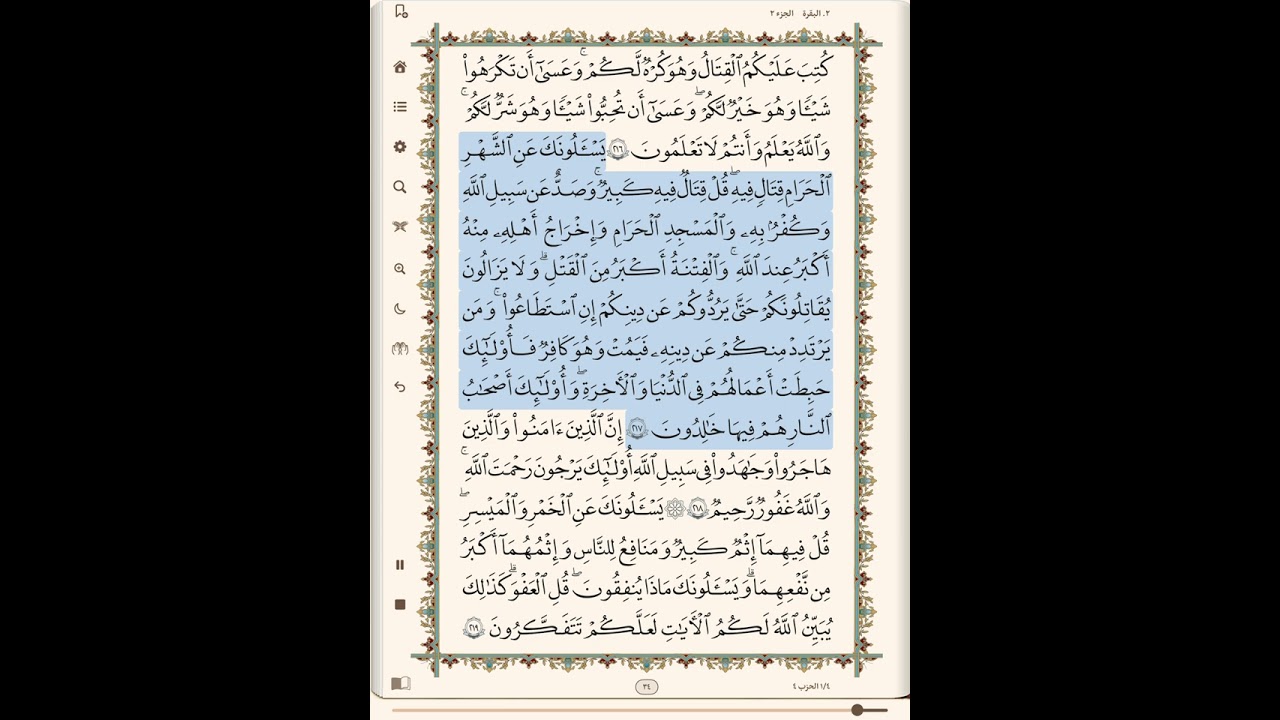 ٢. البقرة الجزء ٢
كُتِبَ عَلَيْكُمُ ٱلْقِتَالُ وَهُوَ كُرْهٌ لَّكُمْ ۖ وَعَسَىٰٓ أَن تَكْرَهُوا۟
شَيْـًٔا وَهُوَ خَيْرٌ لَّكُمْ ۖ وَعَسَىٰٓ أَن تُحِبُّوا۟ شَيْـًٔا وَهُوَ شَرٌّ لَّكُمْ ۚ
وَٱللَّهُ يَعْلَمُ وَأَنتُمْ لَا تَعْلَمُونَ ٢١٦ يَسْـَٔلُونَكَ عَنِ ٱلشَّهْرِ
ٱلْحَرَامِ قِتَالٍ فِيهِ ۖ قُلْ قِتَالٌ فِيهِ كَبِيرٌ ۚ وَصَدٌّ عَن سَبِيلِ ٱللَّهِ
وَكُفْرٌۢ بِهِۦ وَٱلْمَسْجِدِ ٱلْحَرَامِ وَإِخْرَاجُ أَهْلِهِۦ مِنْهُ
أَكْبَرُ عِندَ ٱللَّهِ ۚ وَٱلْفِتْنَةُ أَكْبَرُ مِنَ ٱلْقَتْلِ ۗ وَلَا يَزَالُونَ
يُقَاتِلُونَكُمْ حَتَّىٰ يَرُدُّوكُمْ عَن دِينِكُمْ إِنِ ٱسْتَطَاعُوا۟ ۚ وَمَن
يَرْتَدِدْ مِنكُمْ عَن دِينِهِۦ فَيَمُتْ وَهُوَ كَافِرٌ فَأُو۟لَـٰٓئِكَ
حَبِطَتْ أَعْمَالُهُمْ فِى ٱلدُّنْيَا وَٱلْـَٔاخِرَةِ ۖ وَأُو۟لَـٰٓئِكَ أَصْحَابُ
ٱلنَّارِ هُمْ فِيهَا خَـٰلِدُونَ ٢١٧ إِنَّ ٱلَّذِينَ ءَامَنُوا۟ وَٱلَّذِينَ
هَاجَرُوا۟ وَجَـٰهَدُوا۟ فِى سَبِيلِ ٱللَّهِ أُو۟لَـٰٓئِكَ يَرْجُونَ رَحْمَتَ ٱللَّهِ ۚ
وَٱللَّهُ غَفُورٌ رَّحِيمٌ ٢١٨ ۞ يَسْـَٔلُونَكَ عَنِ ٱلْخَمْرِ وَٱلْمَيْسِرِ ۖ
قُلْ فِيهِمَآ إِثْمٌ كَبِيرٌ وَمَنَافِعُ لِلنَّاسِ وَإِثْمُهُمَآ أَكْبَرُ
مِن نَّفْعِهِمَا ۗ وَيَسْـَٔلُونَكَ مَاذَا يُنفِقُونَ ۖ قُلِ ٱلْعَفْوَ ۗ كَذَٰلِكَ
يُبَيِّنُ ٱللَّهُ لَكُمُ ٱلْـَٔايَـٰتِ لَعَلَّكُمْ تَتَفَكَّرُونَ ٢١٩
١/٤ الحزب ٤
٣٤